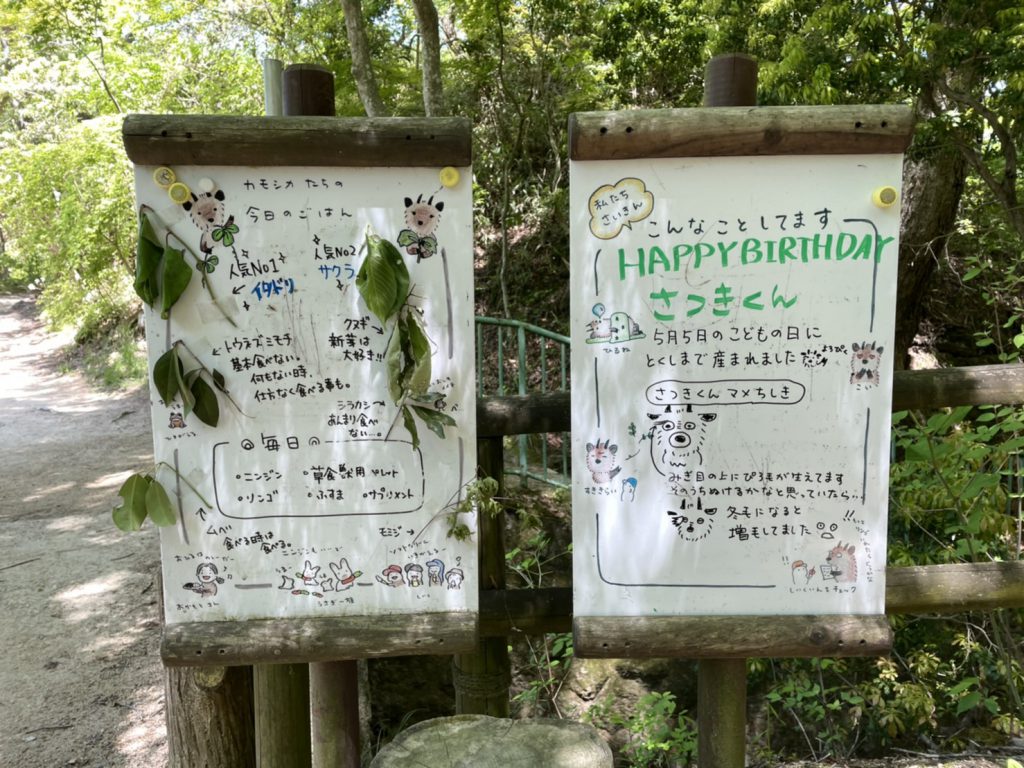 カモシカ たちの
今日のごはん
人気No1
イタドリ
人気No2
サクラ
クヌギ
新芽は
大好き!!
トウネズミモチ
基本食べない。
何もない時、
仕方なく食べる事も。
シラカシ
あんまり食べ
ない…。
毎日の
・ニンジン ・草食獣用ペレット
・リンゴ ・ふすま ・サプリメント
ムベ
食べる時は
食べる。
モミジ
私たち
さいきん
こんなことしてます
HAPPY BIRTHDAY
さつきくん
5月5日のこどもの日に
とくしまで産まれました
ひるね
よろぴく
こい
さつきくんマメちしき
すききらい
みぎ目の上にぴろ毛が生えてます
そのうちぬけるかなと思っていたら…
冬毛になると
増毛してました
しいくいんもチェック